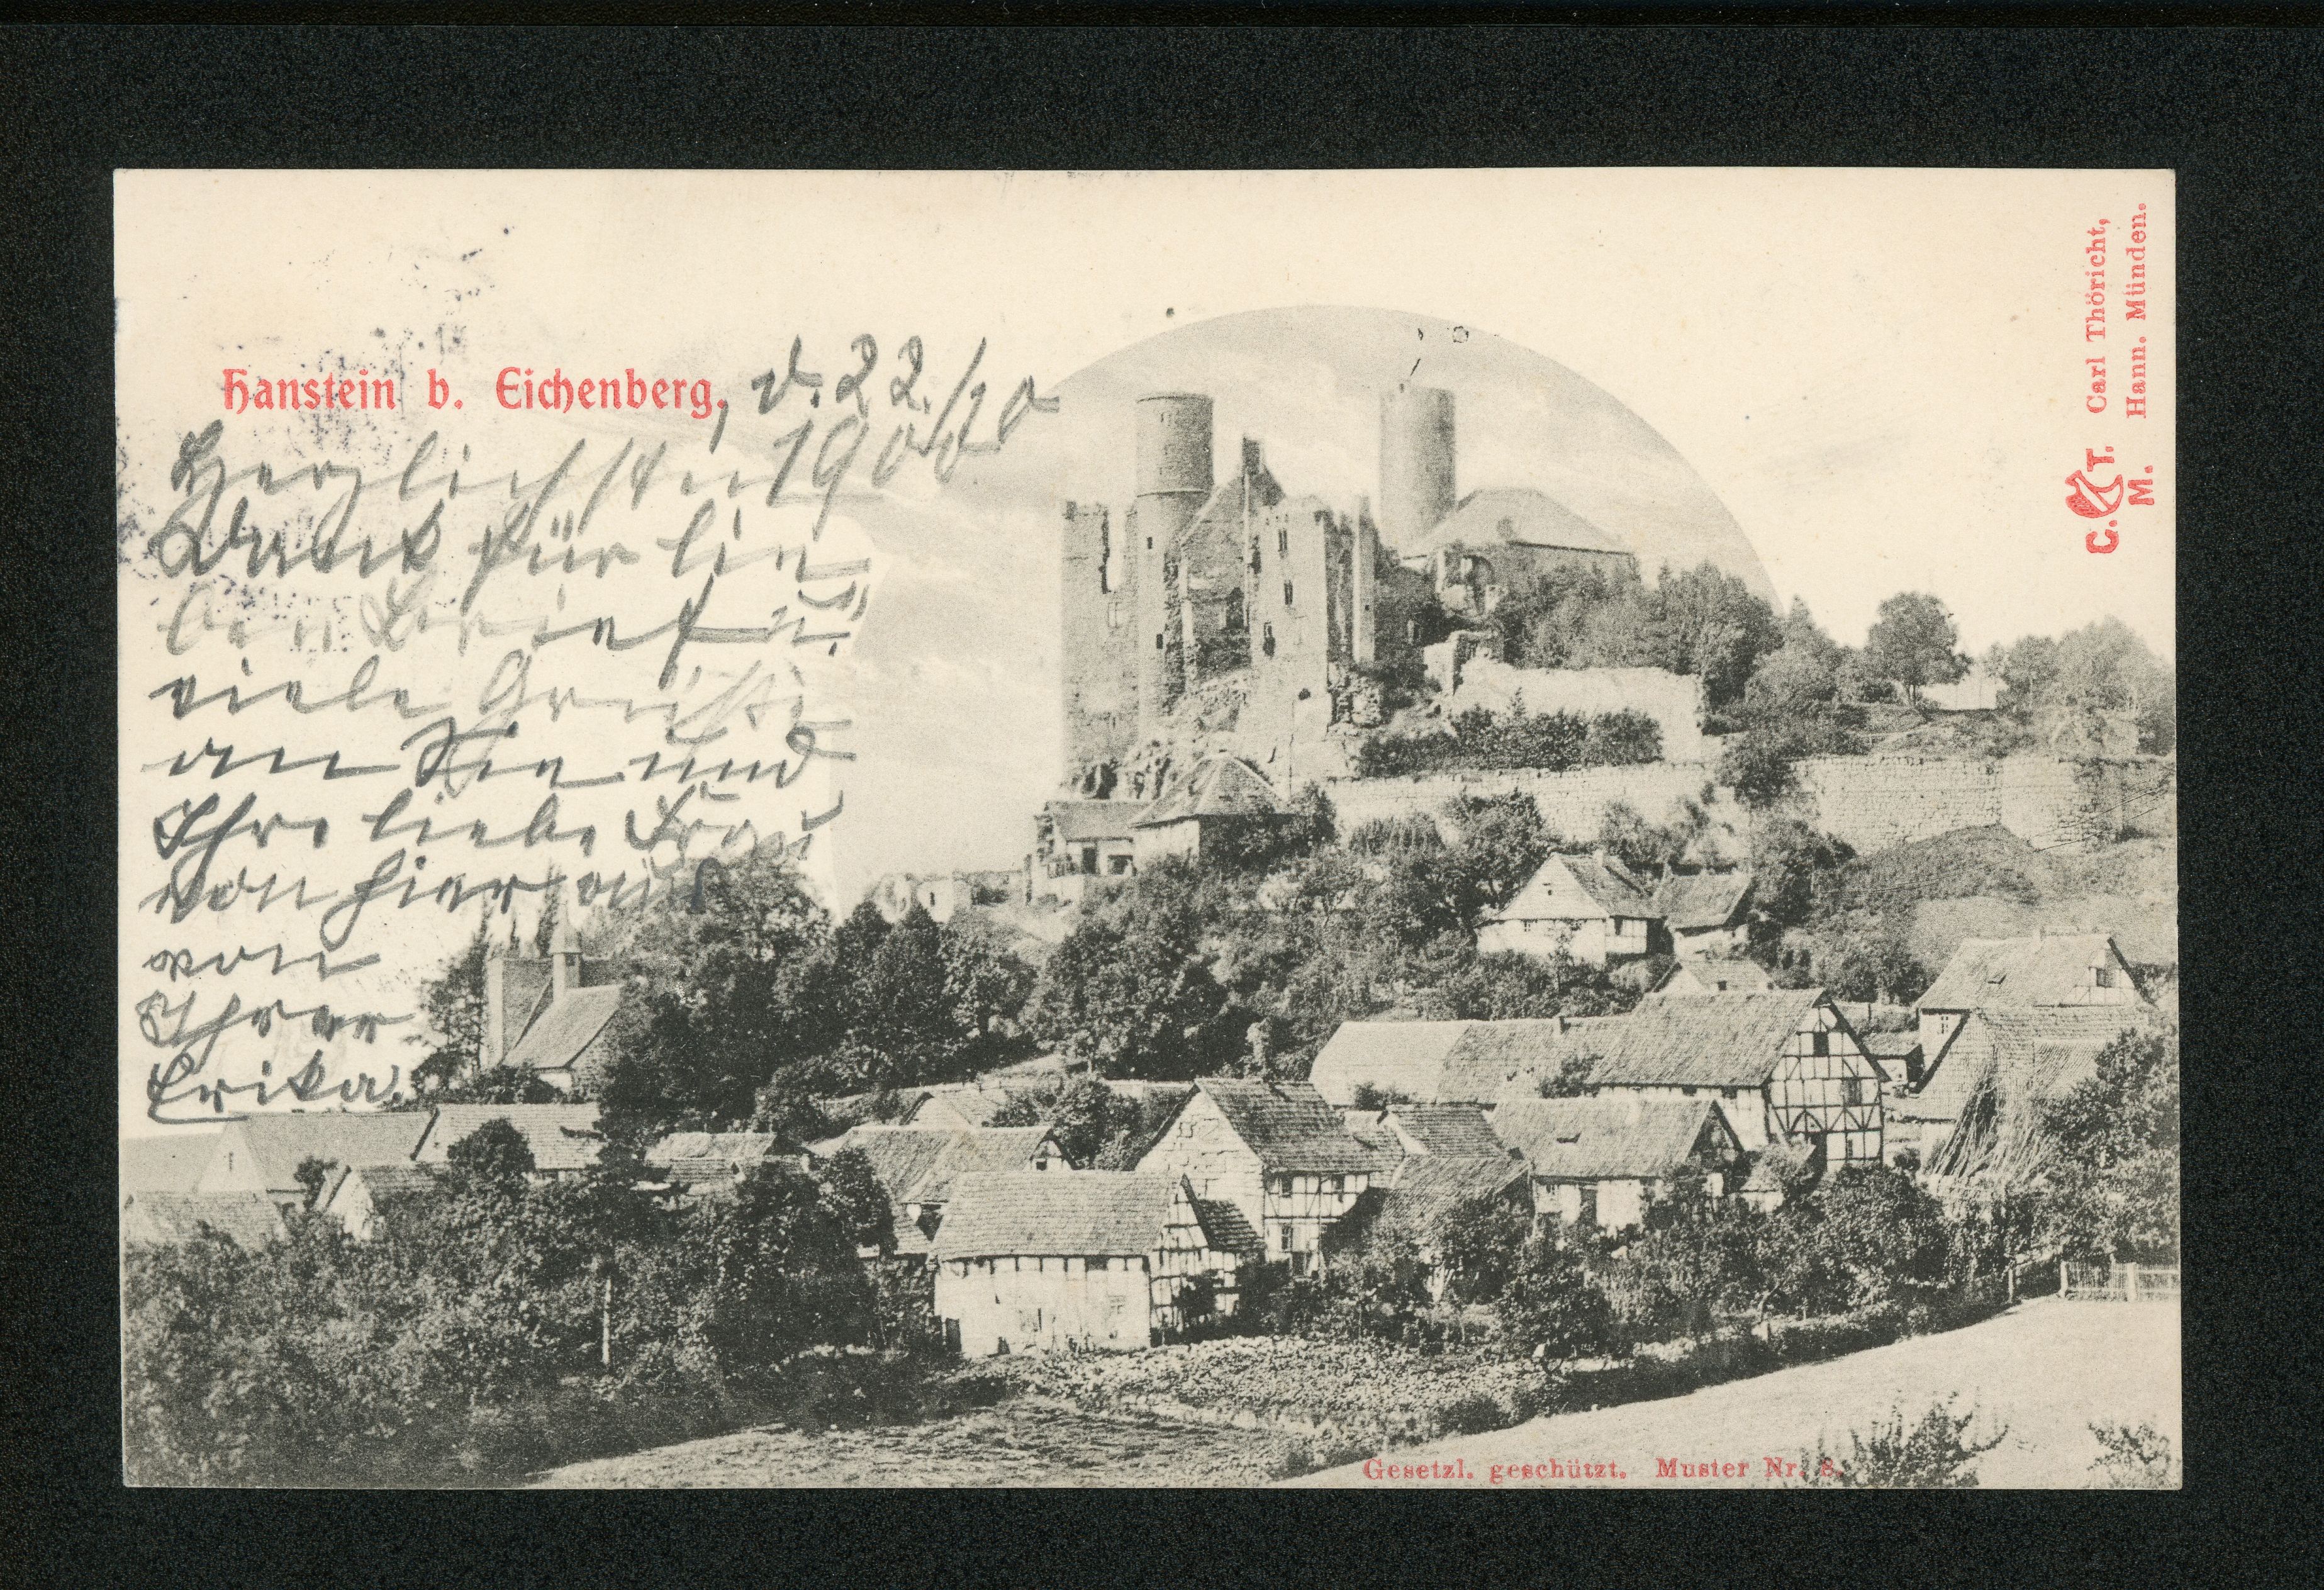 Hanstein b. Eichenberg, d. 22./10
1900
Herzlichsten
Dank für lie-
ben Brief u.
viele Grüße
an Sie und
Ihre liebe Frau
von hier aus
von
Ihrer
Erika.
Carl Thöricht,
Hann. Münden.
C. T.
M.
Gesetzl. geschützt. Muster Nr. 8.